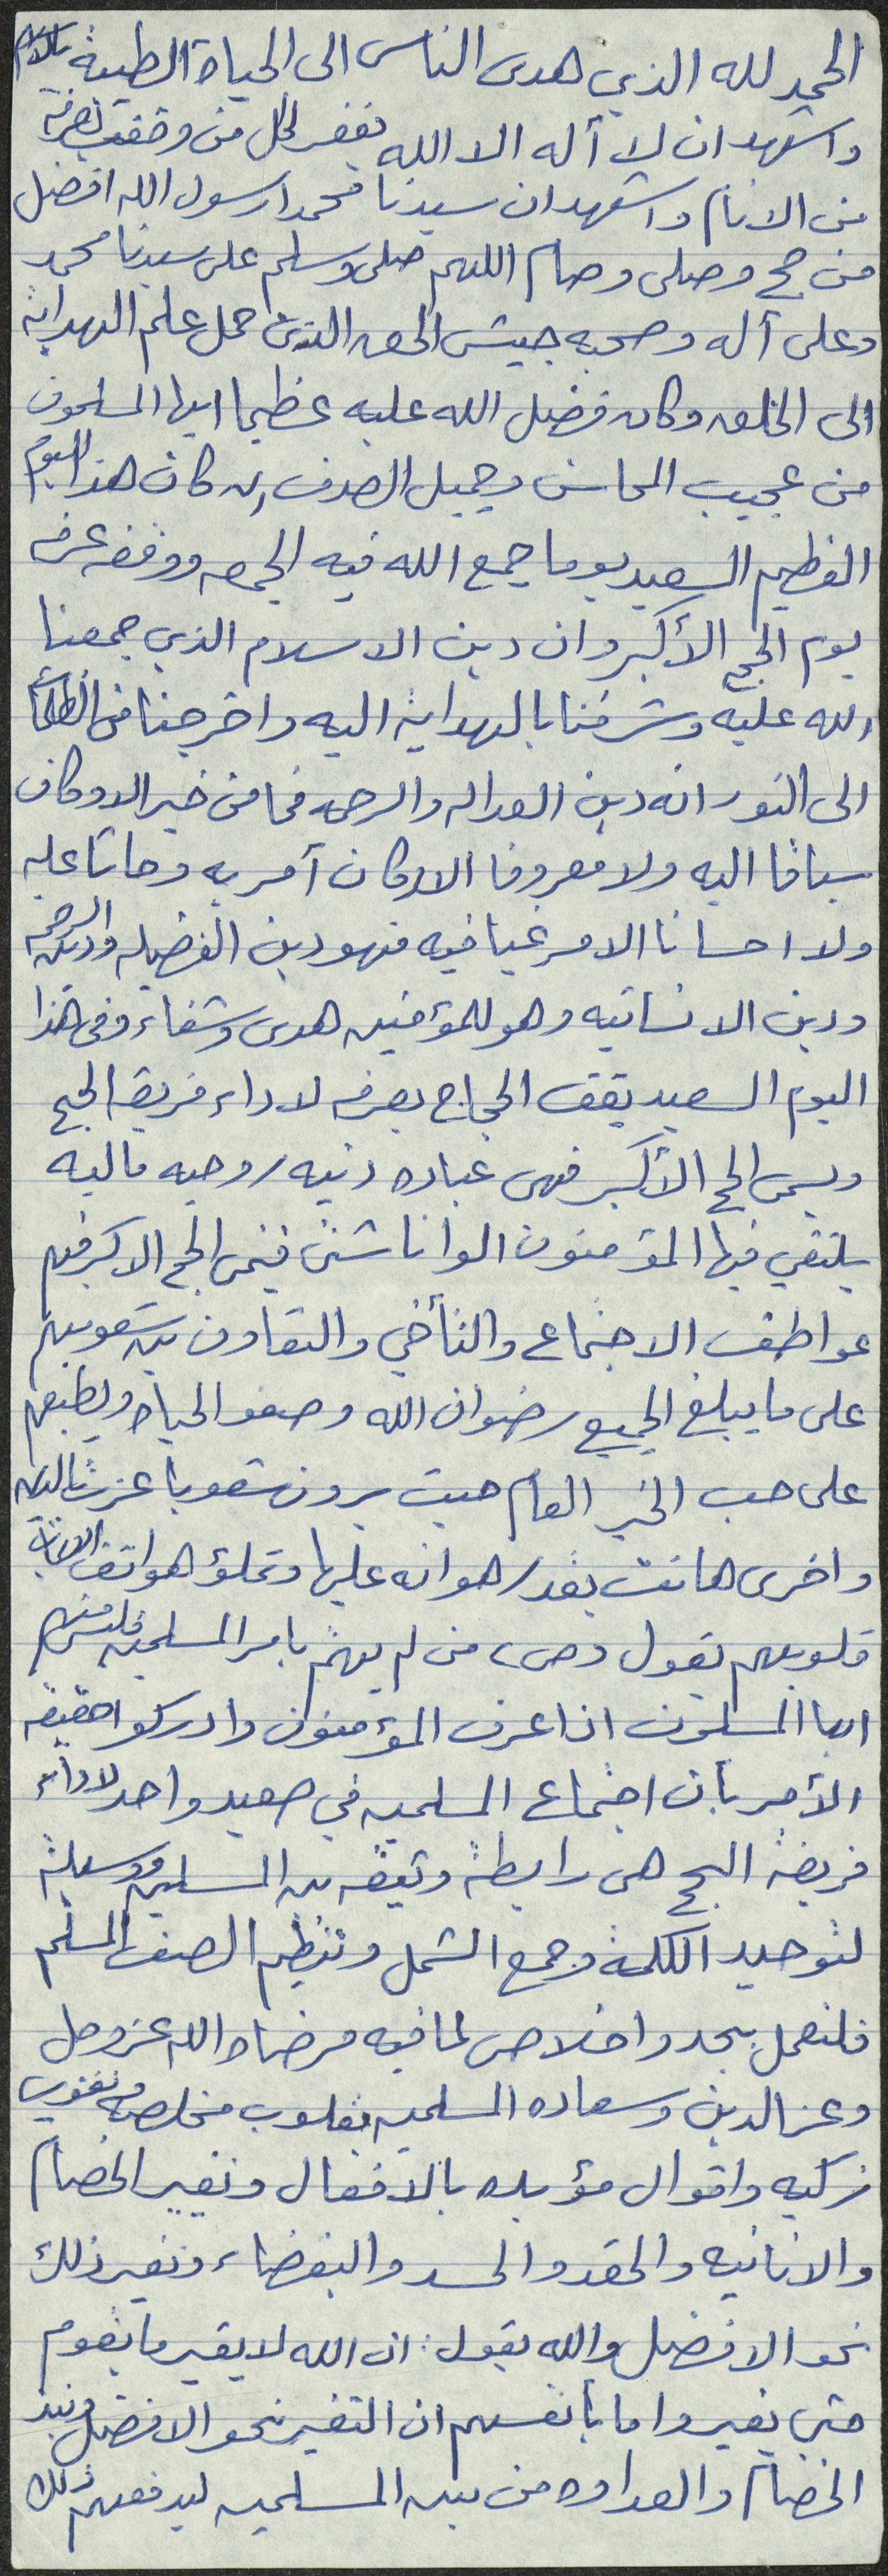 الحمد لله الذي هدى الناس الى الحياة الطيبة بالاسلام
واشهد ان لا أله الا الله يغفر لكل من وقف بعرفة
من الانام واشهد ان سيدنا محمدا رسول الله افضل
من حج وصلى وصام اللهم صلى وسلم على سيدنا محمد
وعلى آله وصحبه جيش الحق الذى حمل علم الهداية
الى الخلق وكان فضل الله عليه عظيما ايها المسلمون
من عجيب المحاسن وجميل الصدف ان كان هذا اليوم
العظيم السعيد يوما جمع الله فيه الجمعه ووقفه عرفه
يوم الحج الأكبر وان دين الاسلام الذي جمعنا
الله عليه وشرفنا بالهداية اليه واخرجنا من الظلمات
الى النور انه دين العداله والرحمه فما من خير الا وكان
سباقا اليه ولا معروفا الا وكان آمر به وحاثا عليه
ولا احسانا الا مرغبا فيه فهو دين الفضيله ودين الرحمه
ودين الانسانيه وهو للمؤمنين هدى وشفاء وفى هذا
اليوم السعيد يقف الحجاج بعرفه لاداء فريضة الحج
ويسمى الحج الأكبر فهى عباده دنيه روحيه ماليه
يلتقي فيها المؤمنون الوانا شتى فينمى الحج الاكبر فيهم
عواطف الاجتماع والتأخي والتعاون بين شعوبهم
على ما يبلغ الجميع رضوان الله وصفو الحياه ويطبعهم
على حب الخير العام حيث يرون شعوبا عزت
واخرى هانت بقدر هوانه عليها وتملؤ هواتف
قلوبهم بقول من لم يهتم بامر المسلمين فليس منهم
ايها المسلمون اذا عرف المؤمنون وادركوا حقيقه
الأمر بأن اجتماع المسلمين في صعيد واحد لاداء
فريضة الحج هى رابطة وثيقه بين المسلمين ووسيلة
لتوحيد الكلمة وجمع الشمل وتنظيم الصف المسلم
فلنعمل بجد واخلاص لما فيه مرضاة الله عز وجل
وعز الدين وسعاده المسلمين بقلوب مخلصه ونفوس
زكيه واقوال مؤيده بالافعال ونغير الخصام
والانانيه والحقد والحسد والبغضاء ونغير ذلك
نحو الافضل والله يقول: ان الله لا يغير ما بقوم
حتى يغيروا ما بأنفسهم ان التغير نحو الافضل ونبذ
الخصام والعداوه من بين المسلمين ليدفعهم ذلك